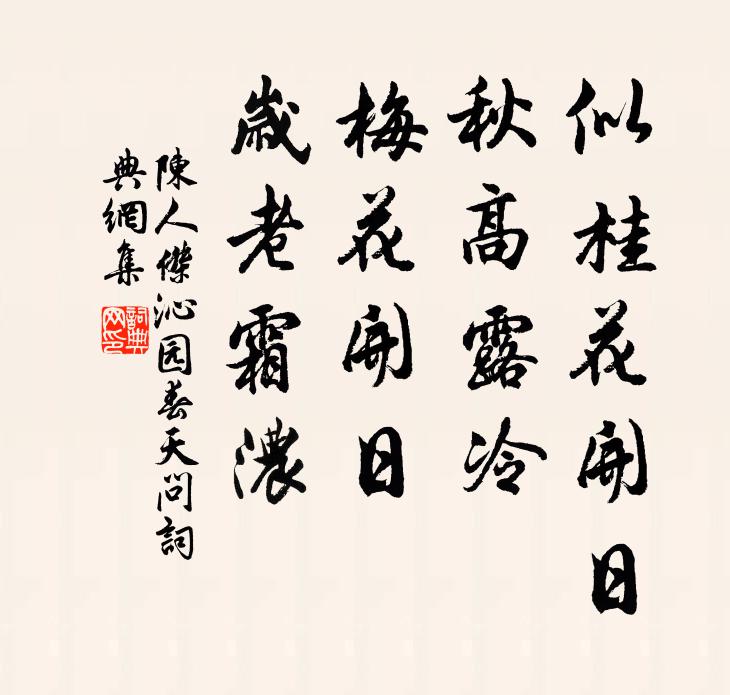 似桂花開日
秋高露冷
梅花開日
歲老霜濃
陳人傑沁园春天问詞
典網集
詞典
网印